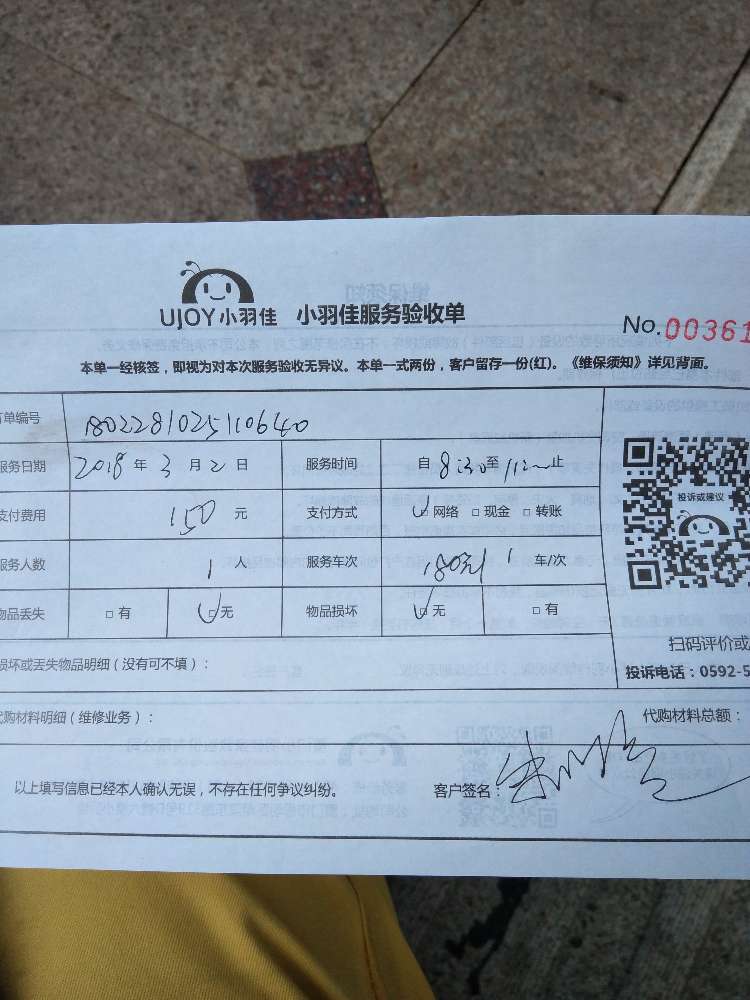 UJOY小羽佳 小羽佳服务验收单
No.00361
本单一经核签，即视为对本次服务验收无异议。本单一式两份，客户留存一份(红)。《维保须知》详见背面。
单编号 1802281025110640
服务日期 2018 年 3 月 2 日 服务时间 自 8:30 至 止
支付费用 150 元 支付方式 网络 □ 现金 □ 转账
服务人数 1 人 服务车次 1 车/次
物品丢失 □ 有 □ 无 物品损坏 □ 无 □ 有
投诉或建议
损坏或丢失物品明细（没有可不填）：
扫码评价或
投诉电话：0592-5
代购材料明细（维修业务）：
代购材料总额：
以上填写信息已经本人确认无误，不存在任何争议纠纷。
客户签名：